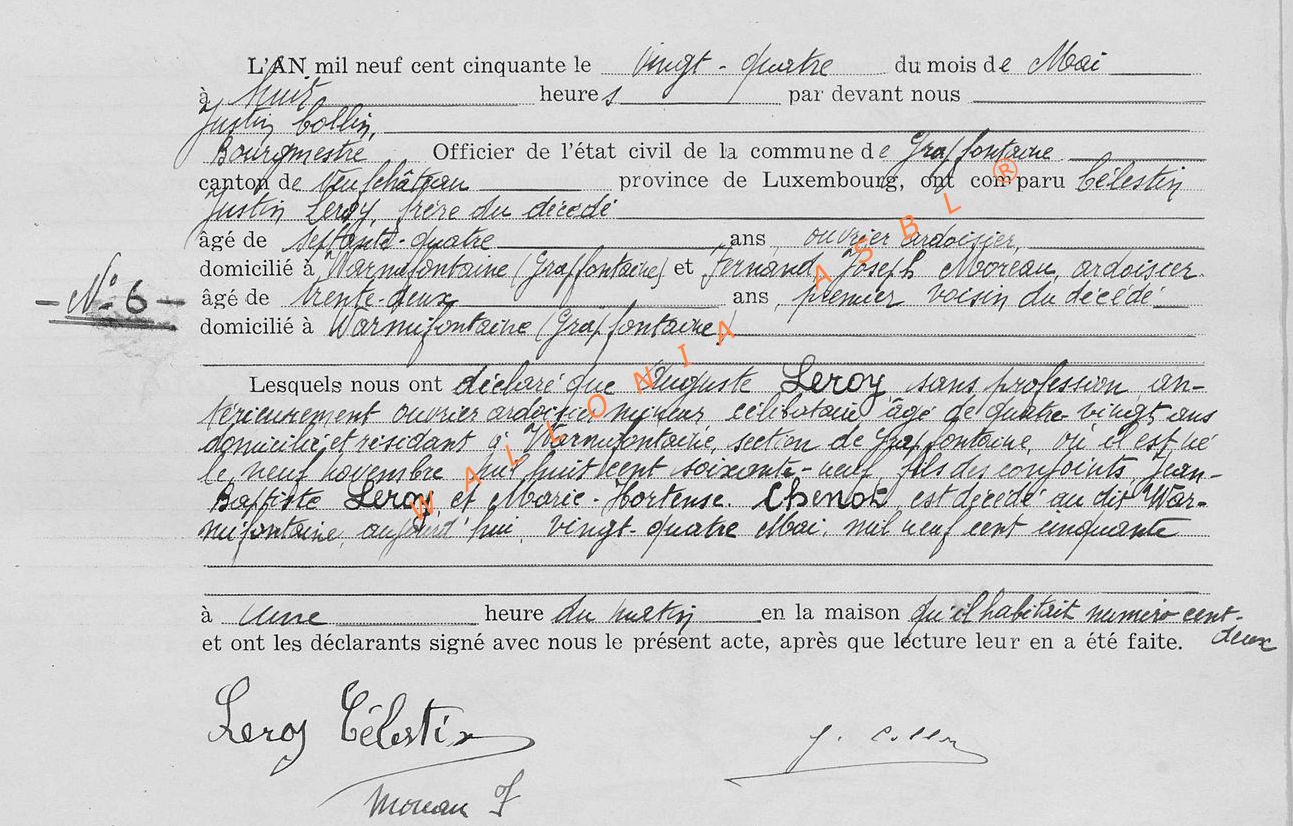 L'AN mil neuf cent cinquante le vingt-quatre du mois de Mai
à huit heures par devant nous
Justin Collin,
Bourgmestre Officier de l'état civil de la commune de Graffontaine
canton de Neufchâteau province de Luxembourg, ont comparu Célestin
Justin Leroy, frère du décédé
âgé de septante-quatre ans ouvrier ardoisier
domicilié à Warmifontaine (Grapfontaine) et Fernand Joseph Moreau, ardoisier
— No 6 — âgé de trente-deux ans, premier voisin du décédé
domicilié à Warmifontaine (Grapfontaine)
Lesquels nous ont déclaré que Auguste Leroy, sans profession, an-
térieurement ouvrier ardoisier mineur, célibataire, âgé de quatre-vingt ans
domicilié et résidant à Warmifontaine, section de Grapfontaine, où il est né
le neuf novembre mil huit cent soixante-neuf, fils des conjoints, Jean-
Baptiste Leroy et Marie-Hortense Chenot, est décédé au dit War-
mifontaine, aujourd'hui, vingt-quatre Mai, mil neuf cent cinquante
à une heure du matin en la maison qu'il habitait numéro cent-
deux
et ont les déclarants signé avec nous le présent acte, après que lecture leur en a été faite.
Leroy Célestin
J. Collin
Moreau F
WALLONIA ASBL ®